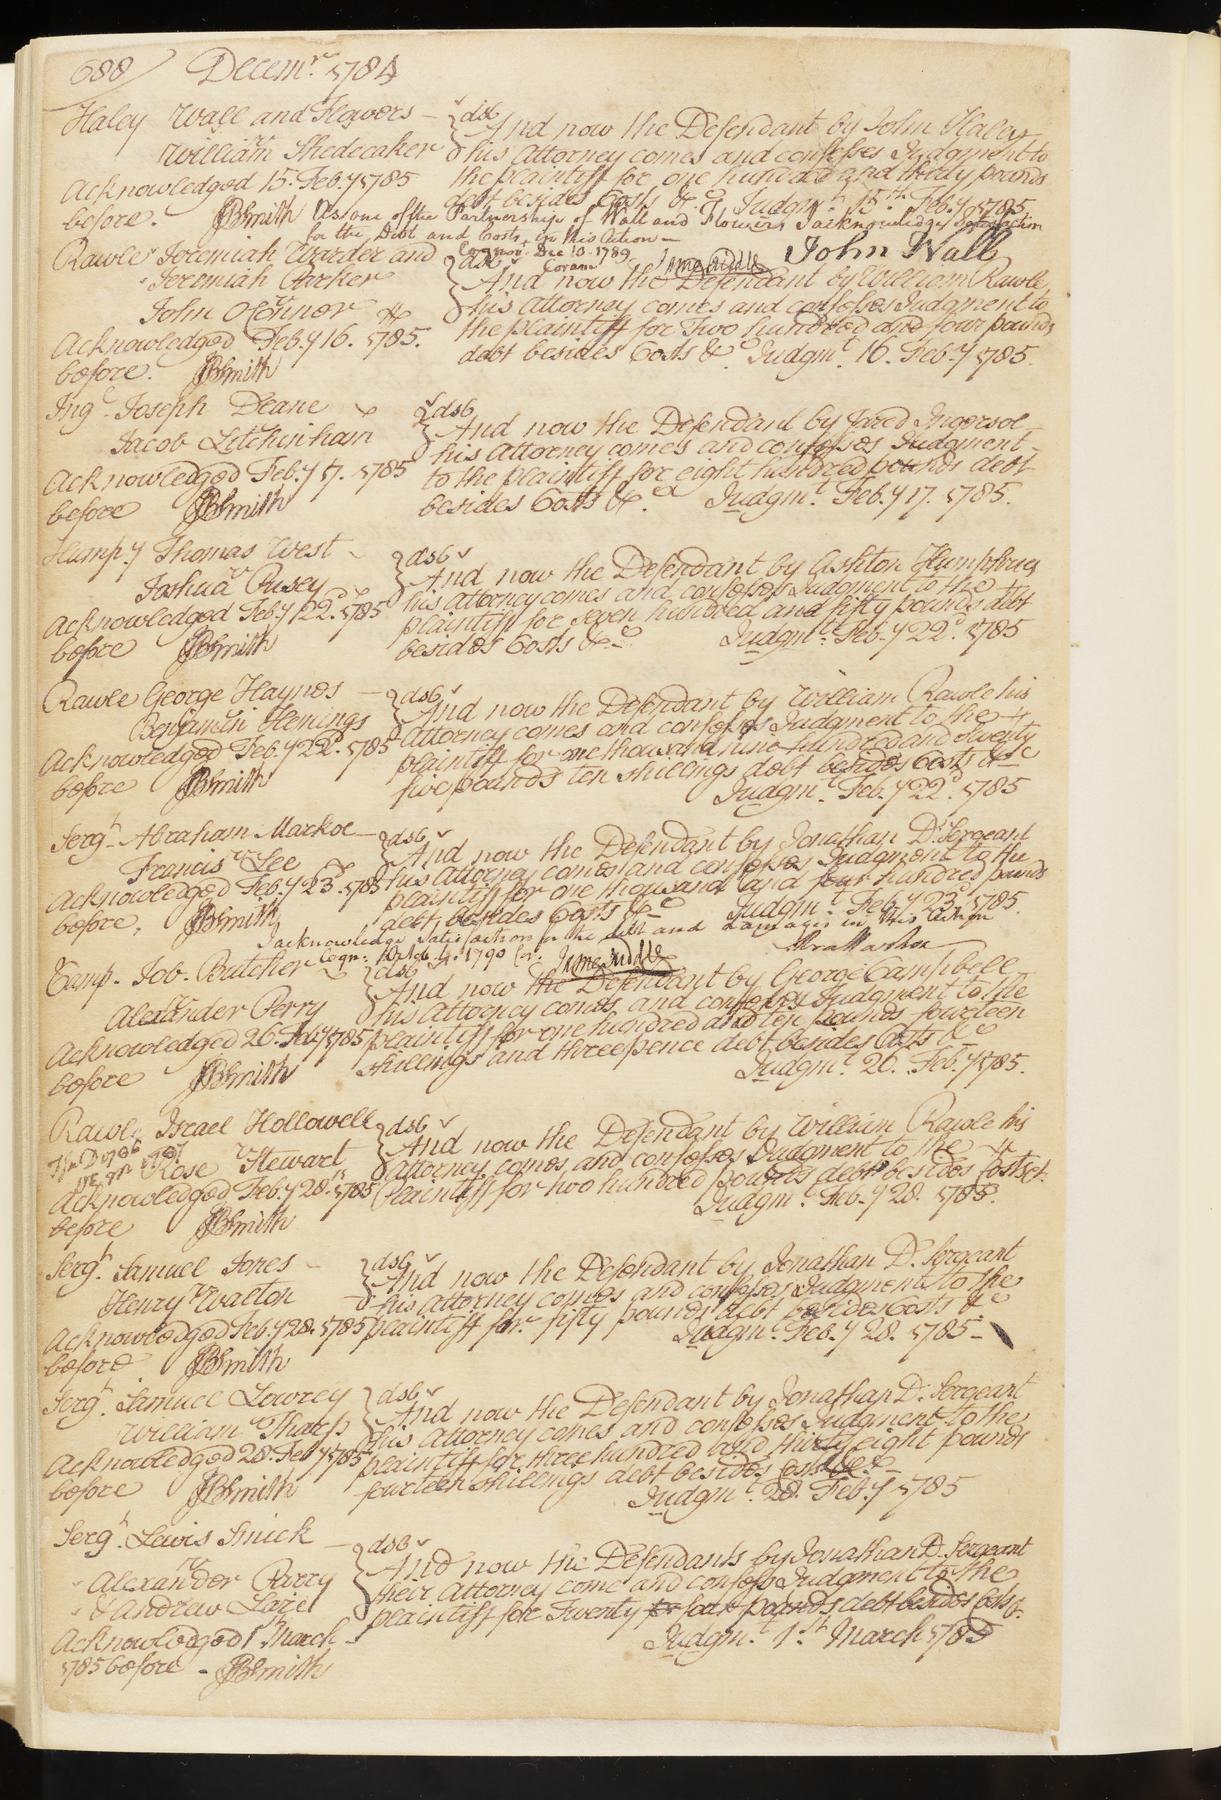 688 Decemr. 1784
Haley Wall and Flowers — dsb
vs And now the Defendant by John Haley
William Shedecaker his Attorney comes and confesses Judgment to
Acknowledged 15. Feby 1785 the plaintiff for one hundred and thirty pounds
before. JBSmith debt besides Costs &c Judgmt. 15th. Feby. 1785
As one of the Partnership of Wall and Flowers I acknowledge Satisfaction
for the Debt and Costs in this Action —
Cognovt. Dec 10. 1789. John Wall
Coram James Biddle
Rawle Jeremiah Warder and dsb
Jeremiah Parker And now the Defendant by William Rawle
vs his Attorney comes and confesses Judgment to
John OConnor the plaintiff for Two hundred and four pounds
Acknowledged Feby 16. 1785. debt besides Costs &c Judgmt. 16. Feby 1785.
before. JBSmith
Ing. Joseph Deane dsb
vs And now the Defendant by Jared Ingersol
Jacob Letchinham his Attorney comes and confesses Judgment
Acknowledged Feby 17. 1785 to the plaintiff for eight hundred pounds debt
before JBSmith besides Costs &c. Judgmt. Feby 17. 1785.
Humpy Thomas West dsb
vs And now the Defendant by Ashton Humphries
Joshua Pusey his Attorney comes and confesses Judgment to the
Acknowledged Feby 22d. 1785 plaintiff for seven hundred and fifty pounds debt
before JBSmith besides Costs &c. Judgmt. Feby 22d. 1785
Rawle George Haynes — dsb
vs And now the Defendant by William Rawle his
Benjamin Hemings Attorney comes and confesses Judgment to the
Acknowledged Feby 22d. 1785 plaintiff for one thousand nine hundred and twenty
before JBSmith five pounds ten shillings debt besides Costs &c
Judgmt. Feby 22d. 1785
Sergt. Abraham Markoe — dsb
vs And now the Defendant by Jonathan D. Sergeant
Francis Lee his Attorney comes and confesses Judgment to the
Acknowledged Feby 23d. 1785 plaintiff for one thousand and four hundred pounds
before, JBSmith debt, besides Costs &c Judgmt. Feby 23d. 1785.
I acknowledge satisfaction for the debt and damages in this Action
Cogn: Octob. 4. 1790 Cor: James Biddle Abra Markoe
Camp. Job. Butcher dsb
vs And now the Defendant by George Campbell
Alexander Perry his Attorney comes and confesses Judgment to the
Acknowledged 26. Feby 1785 plaintiff for one hundred and ten pounds fourteen
before JBSmith shillings and threepence debt besides Costs &c
Judgmt. 26. Feby. 1785.
Rawle Israel Hollowell dsb
vs And now the Defendant by William Rawle his
Rose Stewart Attorney comes, and confesses Judgment to the
Acknowledged Feby 28th. 1785 Plaintiff for two hundred pounds debt besides Costs &c.
before JBSmith Judgmt. Feby 28. 1785.
Sergt. Samuel Jones dsb
vs And now the Defendant by Jonathan D. Sergeant
Henry Walton his Attorney comes and confesses Judgment to the
Acknowledged Feby 28. 1785 plaintiff for fifty pounds debt besides Costs &c
before JBSmith Judgmt. Feby 28. 1785 —
Sergt. Samuel Lowrey dsb
vs And now the Defendant by Jonathan D. Sergeant
William Tharp his Attorney comes and confesses Judgment, to the
Acknowledged 28. Feby 1785 plaintiff for three hundred and thirty eight pounds
before JBSmith fourteen shillings debt besides Costs &c
Judgmt. 28. Feby 1785
Sergt. Lewis Snick — dsb
vs And now the Defendants by Jonathan D. Sergeant
Alexander Parry their Attorney come and confess Judgment to the
& Andrew plaintiff for Twenty four pounds, debt besides Costs &c.
Acknowledged 1st March Judgmt. 1st. March 1785
1785 before — JBSmith